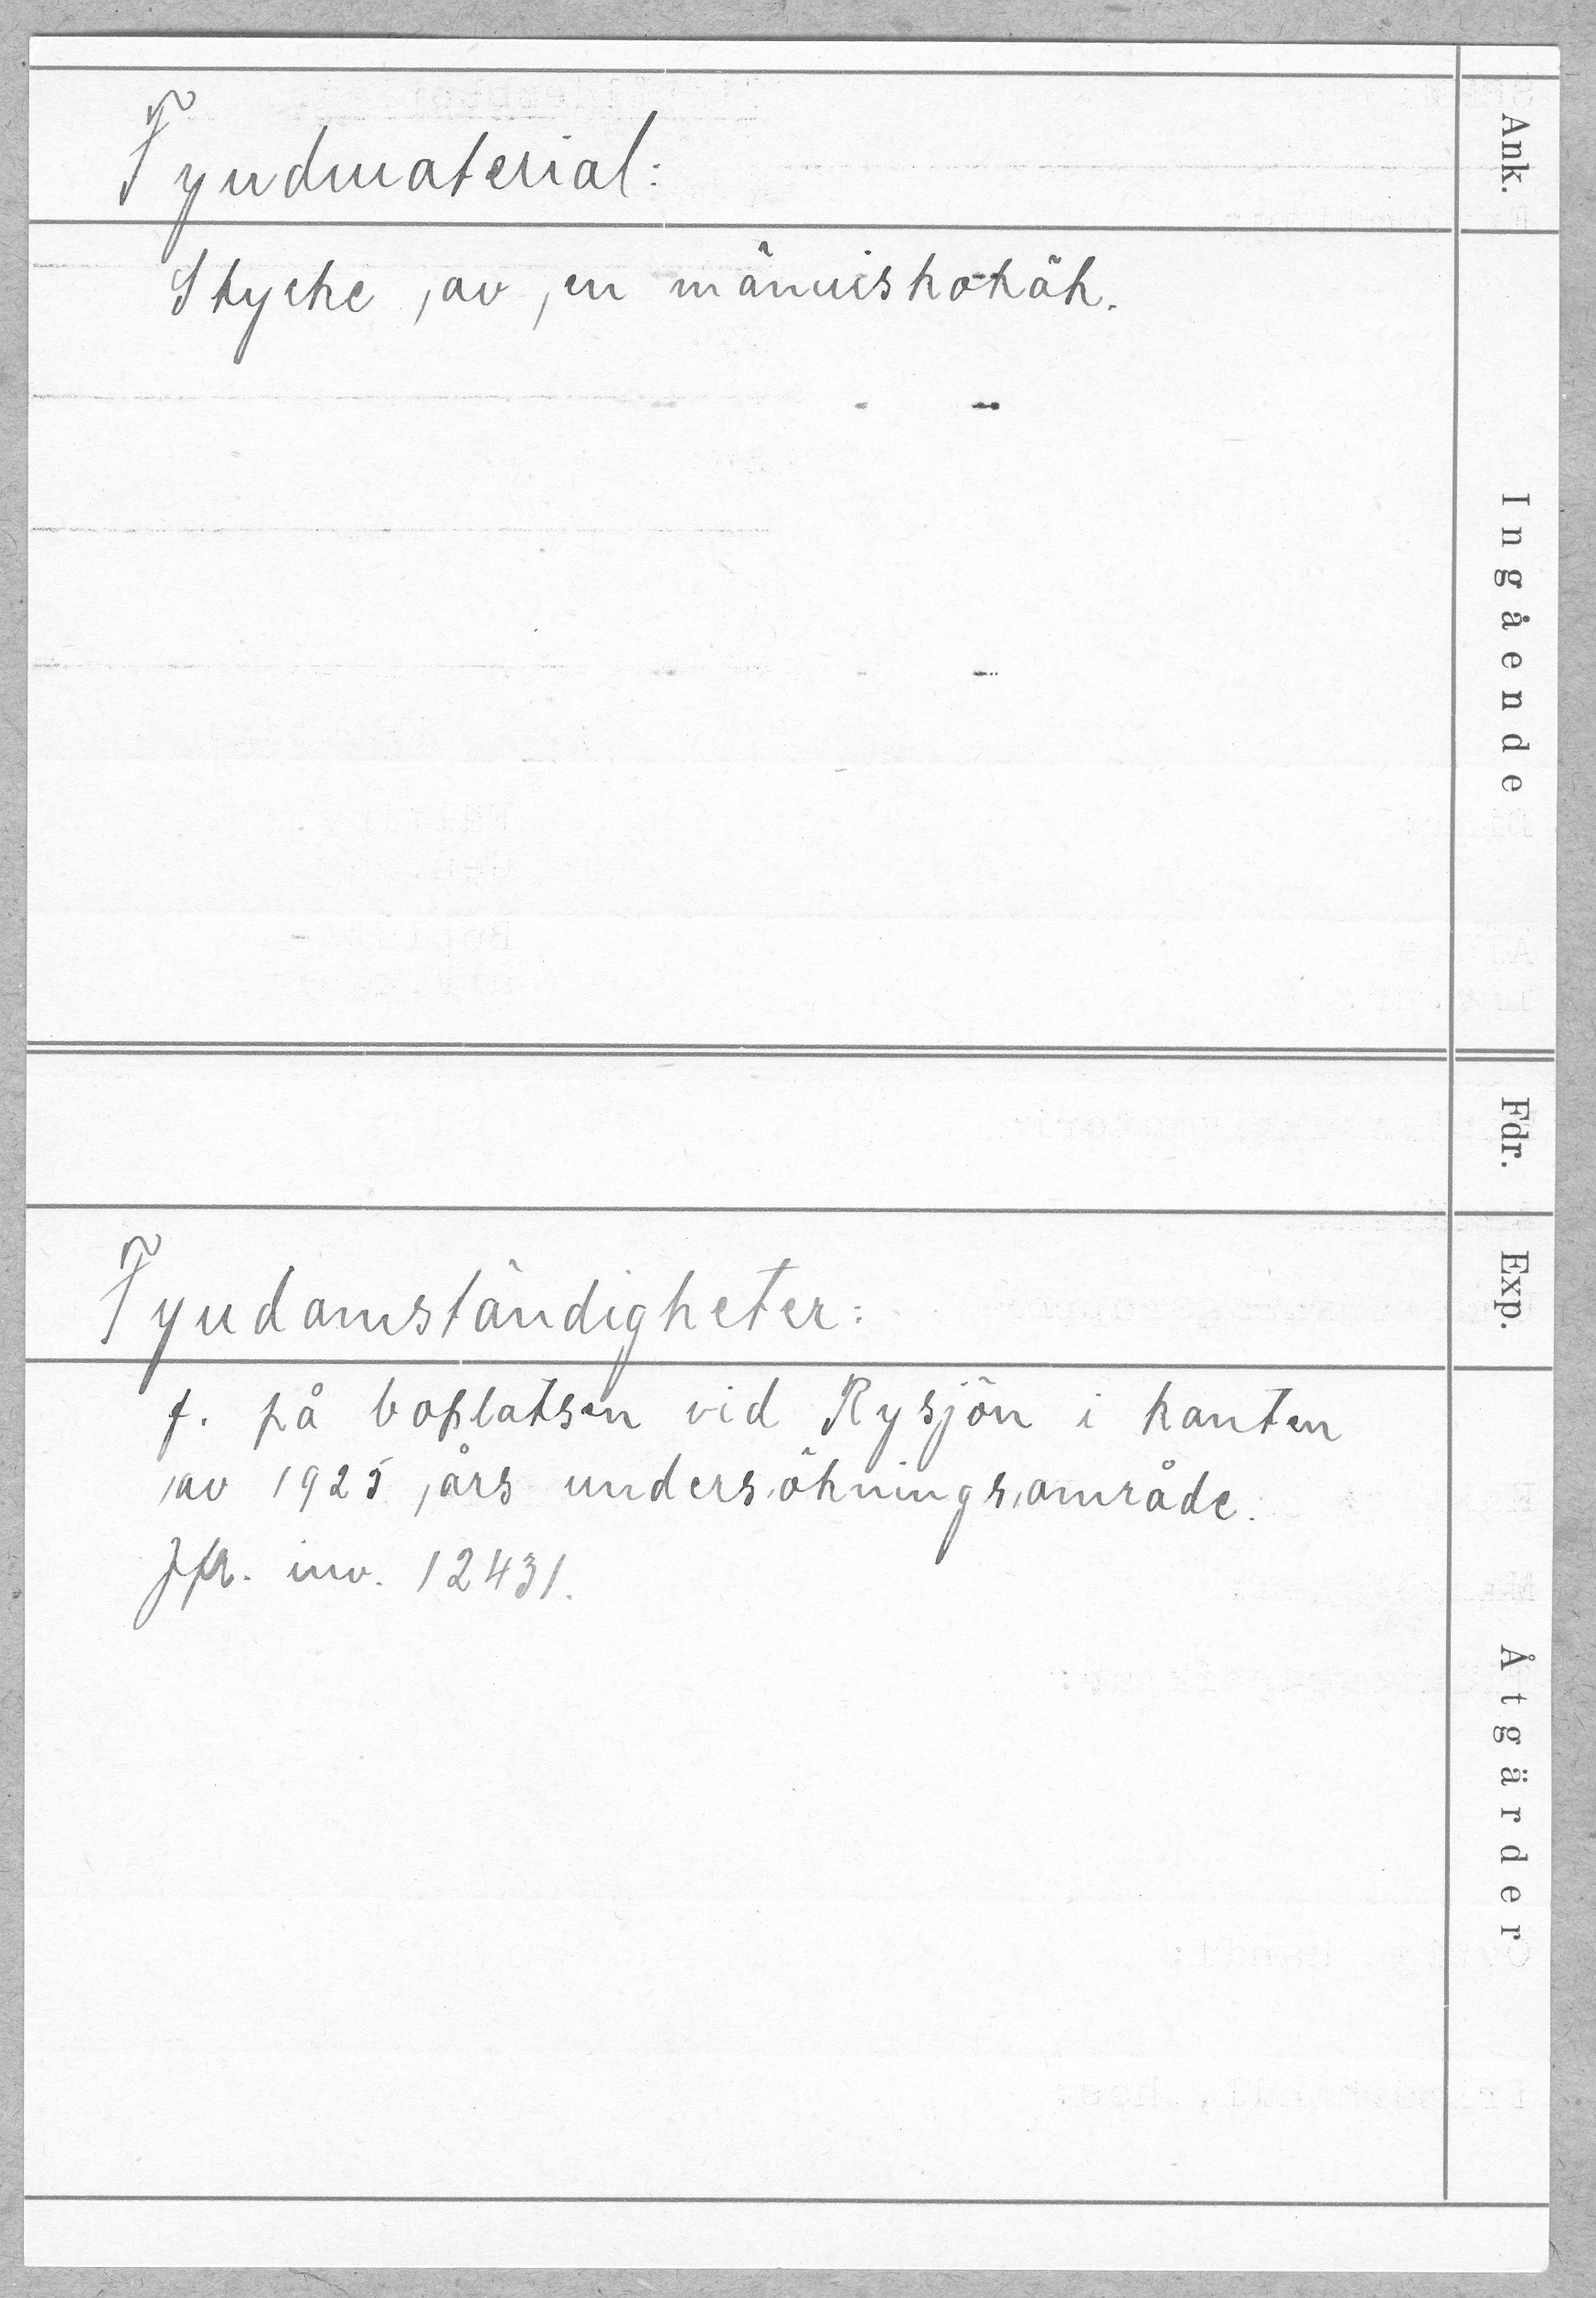 Fyndmaterial:
Stycke av en människokäk.
Fyndomständigheter:
f. på boplatsen vid Rysjön i kanten
av 1925 års undersökningsområde.
Jfr. inv. 12431.
Ank.
Ingående
Fdr.
Exp.
Åtgärder